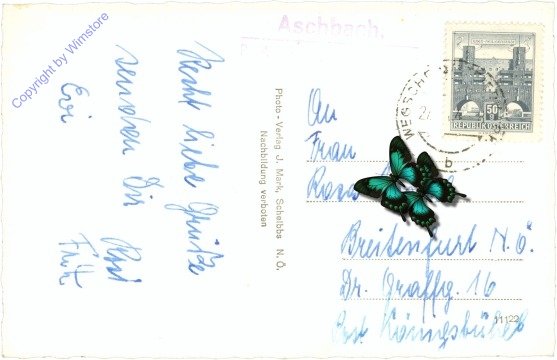 Copyright by Wimstore
Aschbach,
Recht liebe Grüße
senden Dir
Evi
Fritz
Photo-Verlag J. Mark, Scheibbs N. Ö.
Nachbildung verboten
REPUBLIK ÖSTERREICH
50 g
WEGSCHE
An
Frau
Breitenfurt N.Ö.
Dr. 16
Post Königsbühel
11122